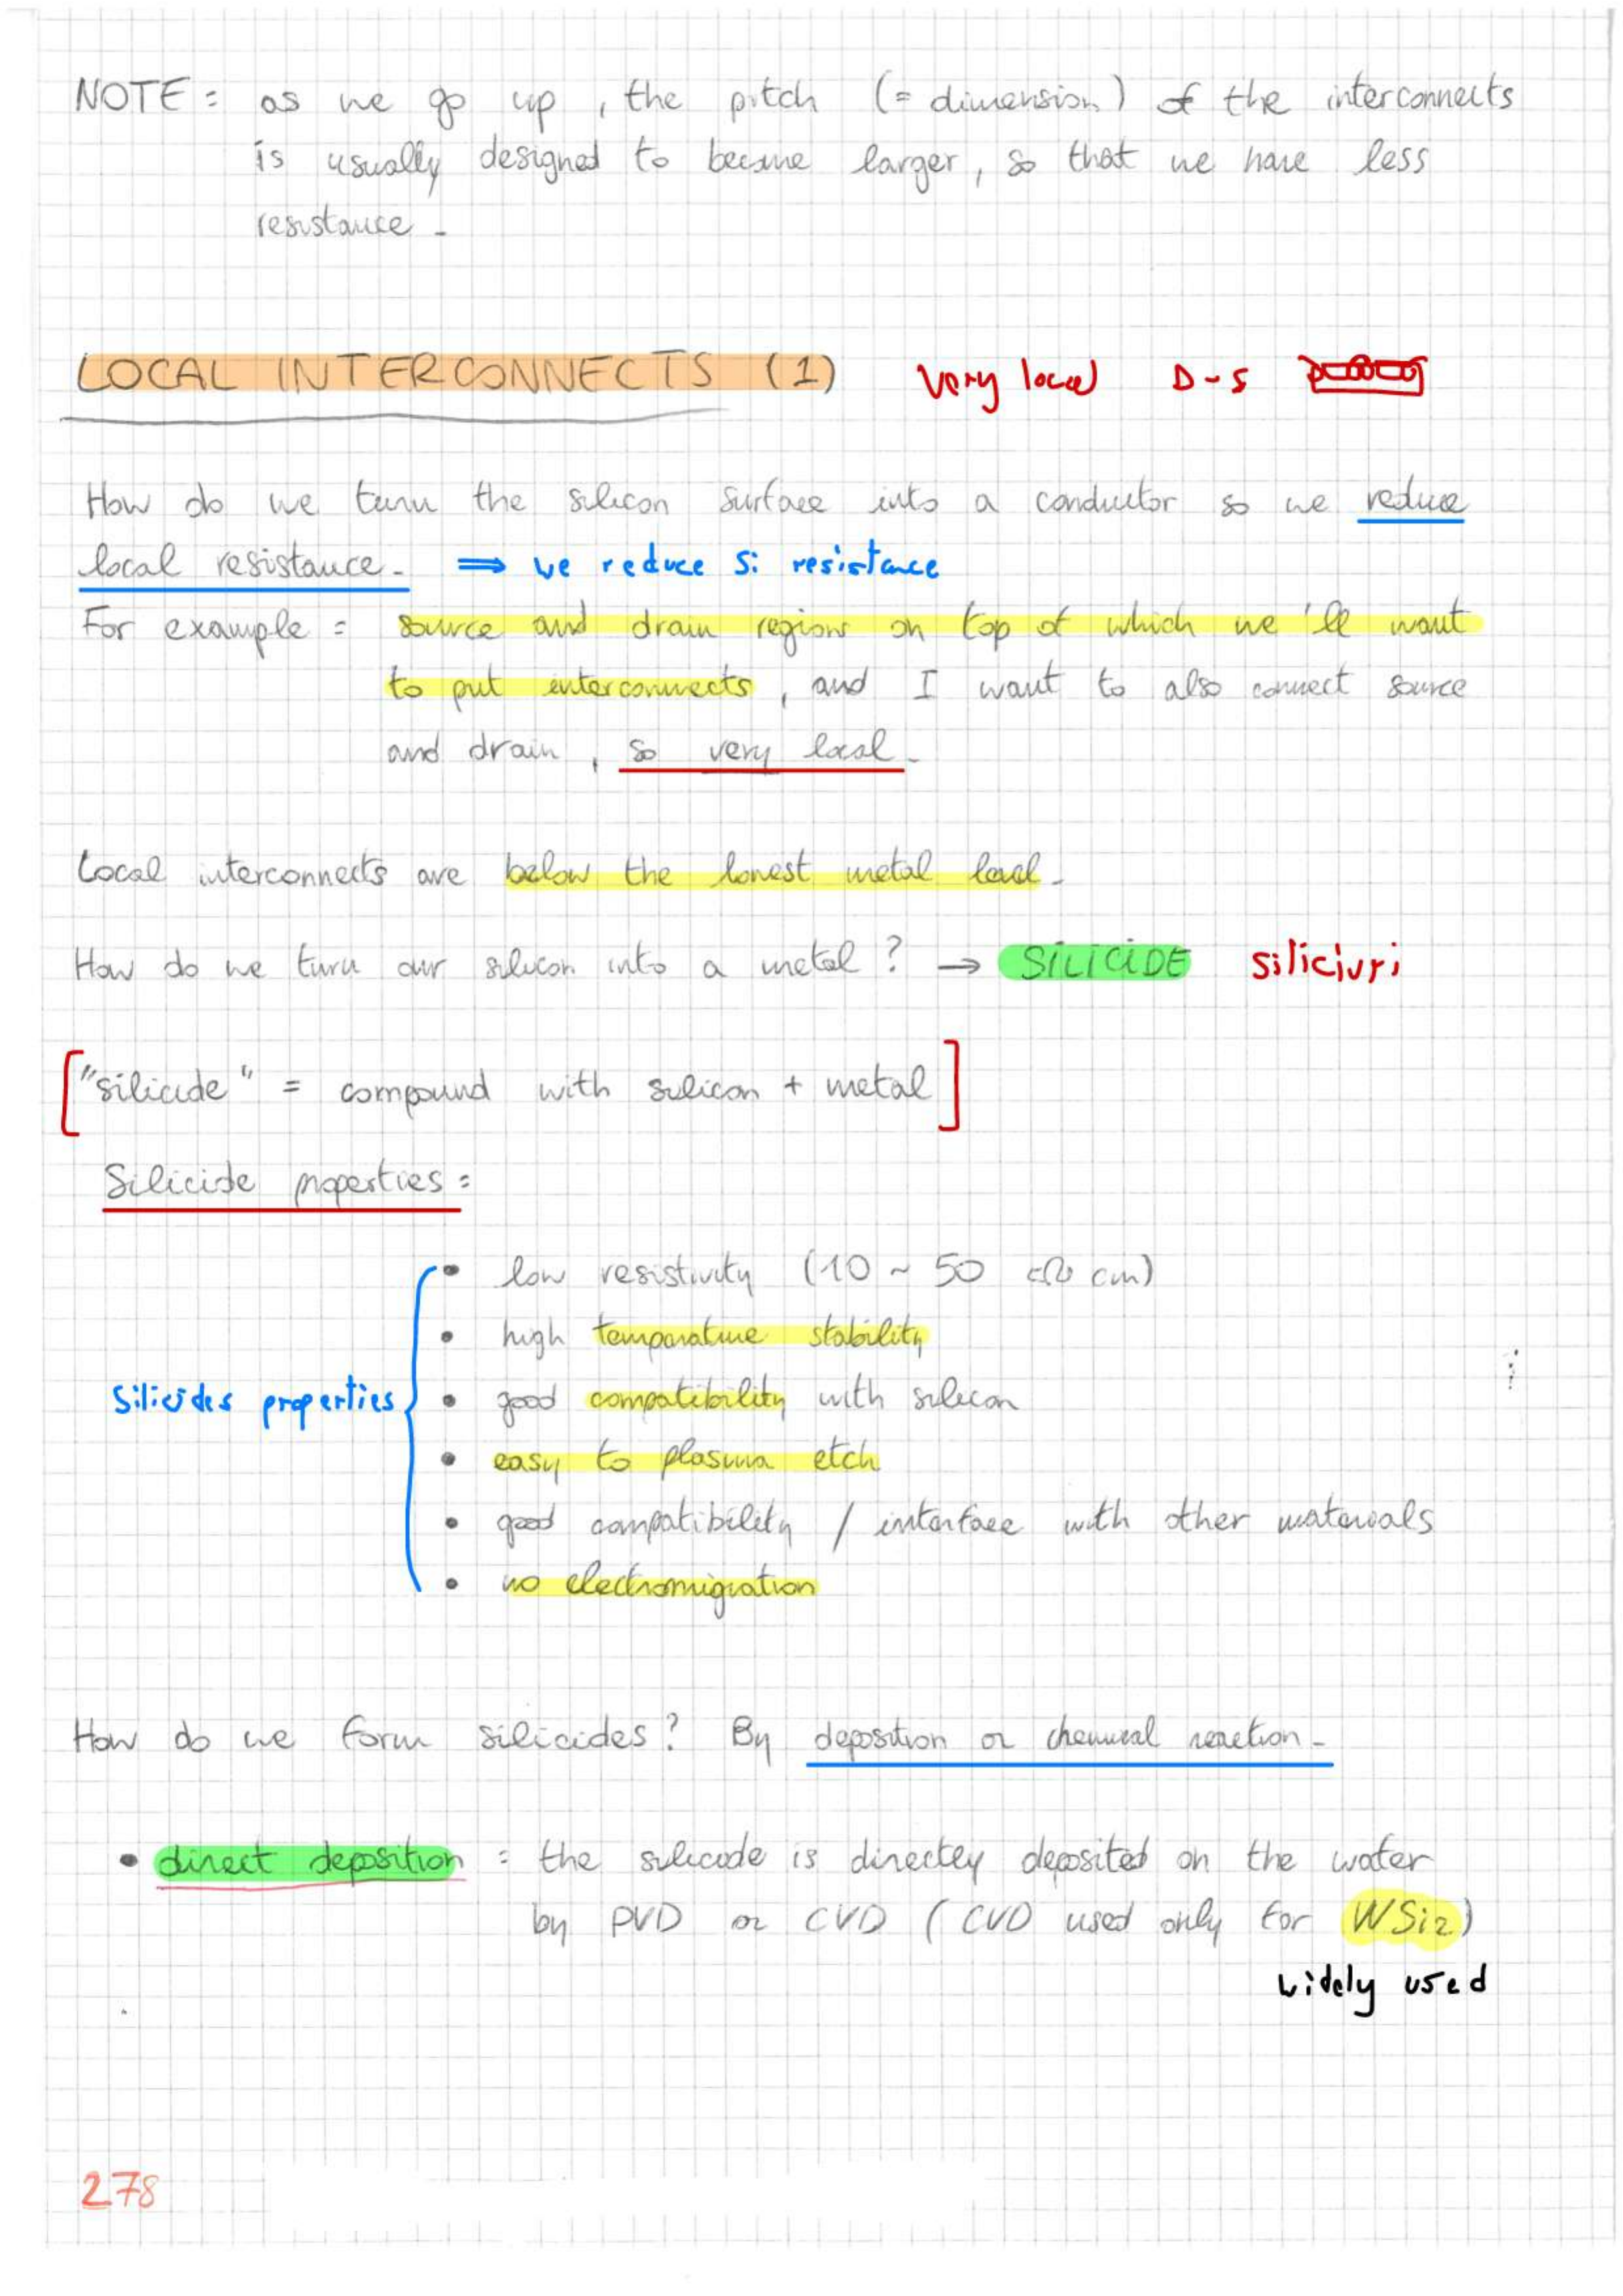 NOTE : as we go up , the pitch (= dimension) of the interconnects
is usually designed to become larger, so that we have less
resistance -
LOCAL INTERCONNECTS (1) Very local D-S
How do we turn the silicon surface into a conductor so we reduce
local resistance - ⇒ we reduce Si resistance
For example : source and drain regions on top of which we'll want
to put interconnects, and I want to also connect source
and drain , so very local -
Local interconnects are below the lowest metal level -
How do we turn our silicon into a metal ? → SILICIDE siliciuri
["silicide" = compound with silicon + metal]
Silicide properties :
• low resistivity (10 ~ 50 cm)
• high temperature stability
Silicides properties • good compatibility with silicon
• easy to plasma etch
• good compatibility / interface with other materials
• no electromigration
How do we form silicides ? By deposition or chemical reaction -
• direct deposition : the silicide is directly deposited on the wafer
by PVD or CVD ( CVD used only for WSi2)
widely used
278